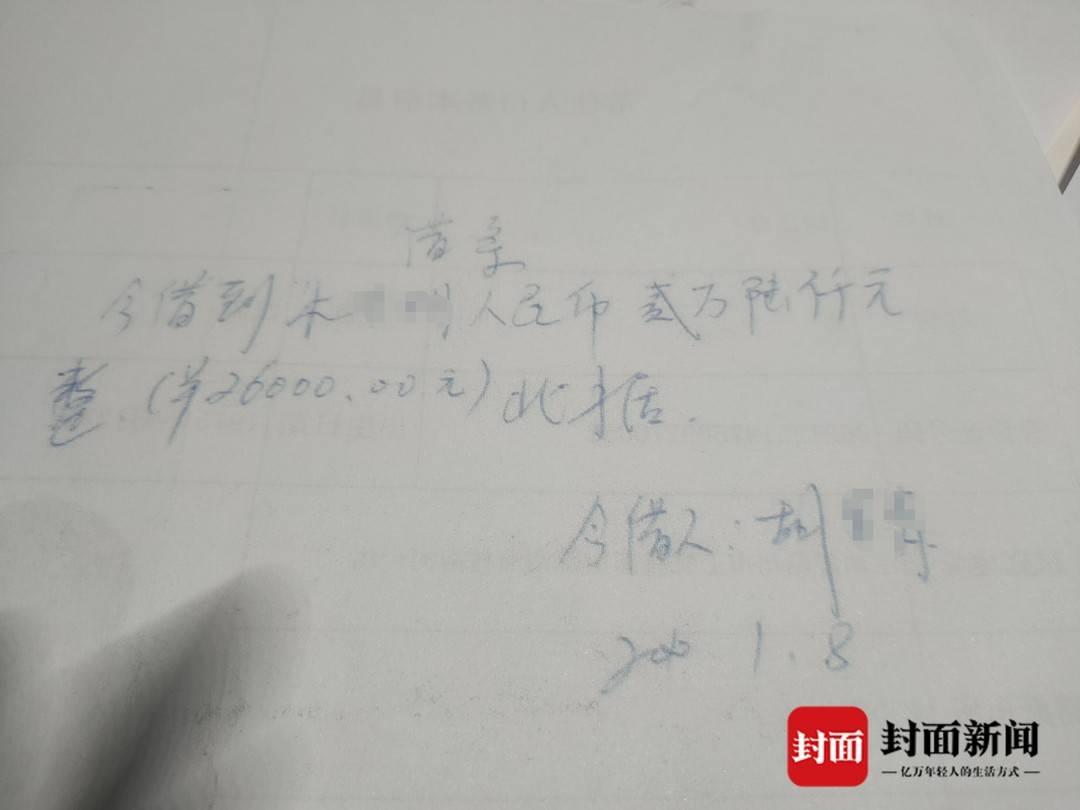 借条
今借到朱 人民币 贰万陆仟元
整（¥26000.00元）此才居.
今借人：胡
1.8
封面
封面新闻
亿万年轻人的生活方式